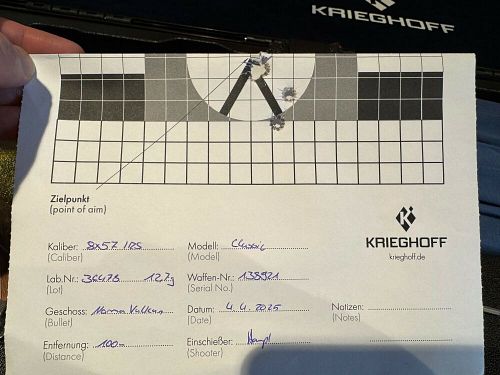 KRIEGHOFF
Zielpunkt
(point of aim)
KRIEGHOFF
krieghoff.de
Kaliber: 8x57 IRS Modell: Classic
(Caliber) (Model)
Lab.Nr.: 36478 12,7g Waffen-Nr.: 138921
(Lot) (Serial No.)
Geschoss: Norma Vulkan Datum: 4.4.2025 Notizen:
(Bullet) (Date) (Notes)
Entfernung: 100m Einschießer:
(Distance) (Shooter)